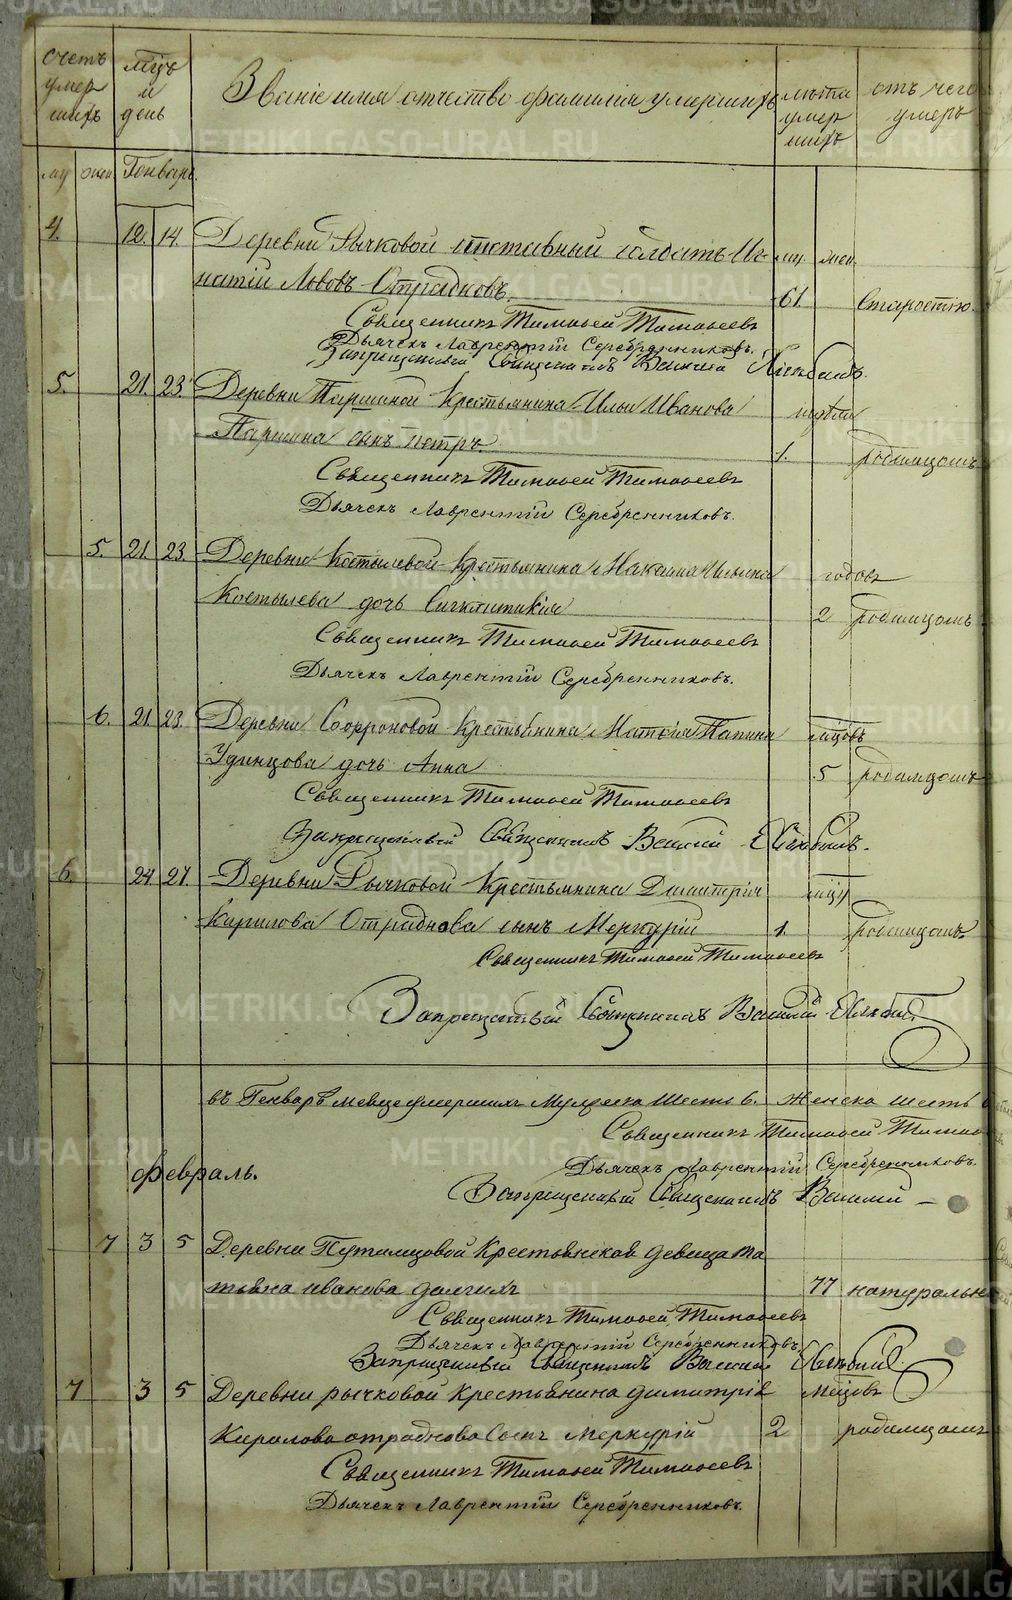 счетъ умер шихъ
мцъ и день
Званіе имя отчество фамилія умершихъ
лѣта умер шихъ
отъ чего умеръ
му жен Генварь.
4. 12. 14. Деревни Рычковой отставный солдатъ Иг- му. жен.
натій Львовъ Отрадновъ. 61. Старостію.
Священникъ Тимофей Тимофеевъ
Дьячекъ Лаврентій Серебренниковъ.
Запрещенный Священникъ Василій
5. 21. 23. Деревни Паршиной Крестьянина Ильи Иванова недѣли
Паршина сынъ Петръ. 1. родимцомъ
Священникъ Тимофей Тимофеевъ
Дьячекъ Лаврентій Серебренниковъ.
5. 21. 23. Деревни Костылевой Крестьянина Ильина годовъ
Костылева дочь Синклитикія 2 родимцомъ
Священникъ Тимофей Тимофеевъ
Дьячекъ Лаврентій Серебренниковъ.
6. 21. 23. Деревни Софроновой Крестьянина мцовъ
Удинцова дочь Анна 5 родимцомъ
Священникъ Тимофей Тимофеевъ
Запрещенный Священникъ Василій
6. 24. 27. Деревни Рычковой Крестьянина Димитрія мцу
Кирилова Отраднова сынъ Меркурій 1. родимцомъ
Священникъ Тимофей Тимофеевъ
Запрещенный Священникъ Василій
въ Генварѣ месяце умершихъ Мужеска шесть 6. Женска шесть
Священникъ Тимофей Тимоф
Дьячекъ Лаврентій Серебренниковъ.
Запрещенный Священникъ Василій
Февраль.
7 3 5 Деревни Путимцовой Крестьянская девица та
тьяна иванова долгихъ 77 натурально
Священникъ Тимофей Тимофеевъ
Дьячекъ Лаврентій Серебренниковъ
Запрещенный Священникъ Василій
7 3 5 Деревни рычковой крестьянина димитрія месцовъ
Кирилова отраднова сынъ Меркурій 2 родимцомъ
Священникъ Тимофей Тимофеевъ
Дьячекъ Лаврентій Серебренниковъ.
METRIKI.GASO-URAL.RU